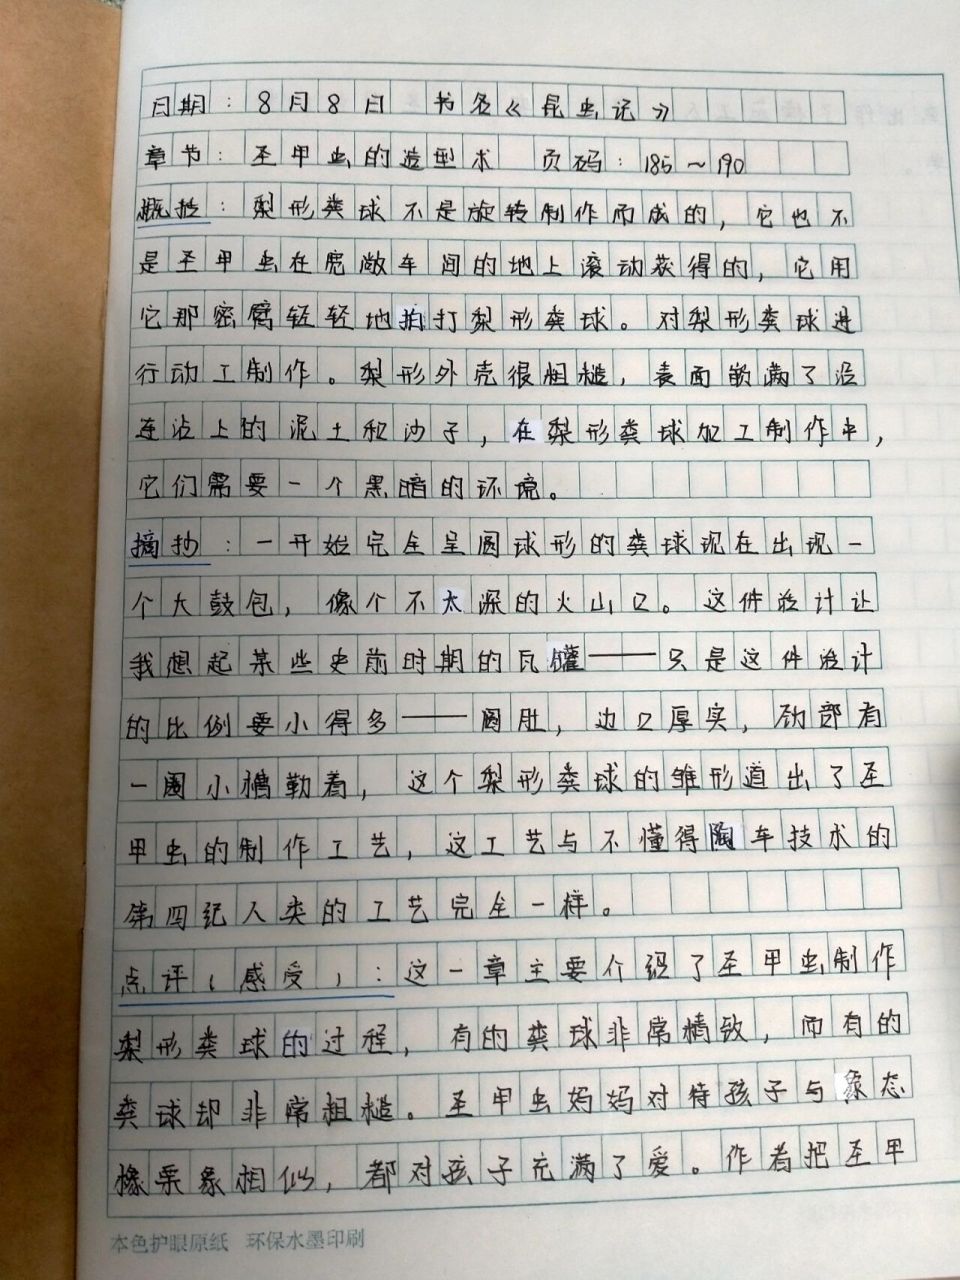 日期：8月8日 书名《昆虫记》
章节：圣甲虫的造型术 页码：185～190
概括：梨形粪球不是旋转制作而成的，它也不
是圣甲虫在宽敞车间的地上滚动获得的，它用
它那密臂轻轻地拍打梨形粪球。对梨形粪球进
行动工制作。梨形外壳很粗糙，表面嵌满了没
连沾上的泥土和沙子，在梨形粪球加工制作中，
它们需要一个黑暗的环境。
摘抄：一开始完全呈圆球形的粪球现在出现一
个大鼓包，像个不太深的火山口。这件设计让
我想起某些史前时期的瓦罐——只是这件设计
的比例要小得多——圆肚，边口厚实，颈部有
一圈小槽勒着，这个梨形粪球的雏形道出了圣
甲虫的制作工艺，这工艺与不懂得陶车技术的
第四纪人类的工艺完全一样。
点评（感受）：这一章主要介绍了圣甲虫制作
梨形粪球的过程，有的粪球非常精致，而有的
粪球却非常粗糙。圣甲虫妈妈对待孩子与象态
橡栗象相似，都对孩子充满了爱。作者把圣甲
本色护眼原纸 环保水墨印刷